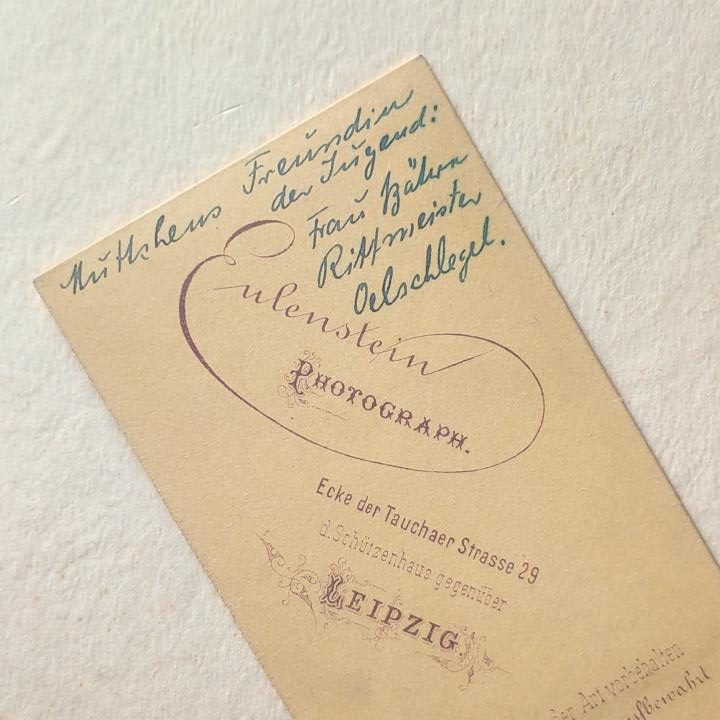 Muttchens Freundin
der Jugend:
Frau
Rittmeister
Oelschlegel.
Eulenstein
PHOTOGRAPH.
Ecke der Tauchaer Strasse 29
d. Schützenhaus gegenüber
LEIPZIG.
der Art vorbehalten